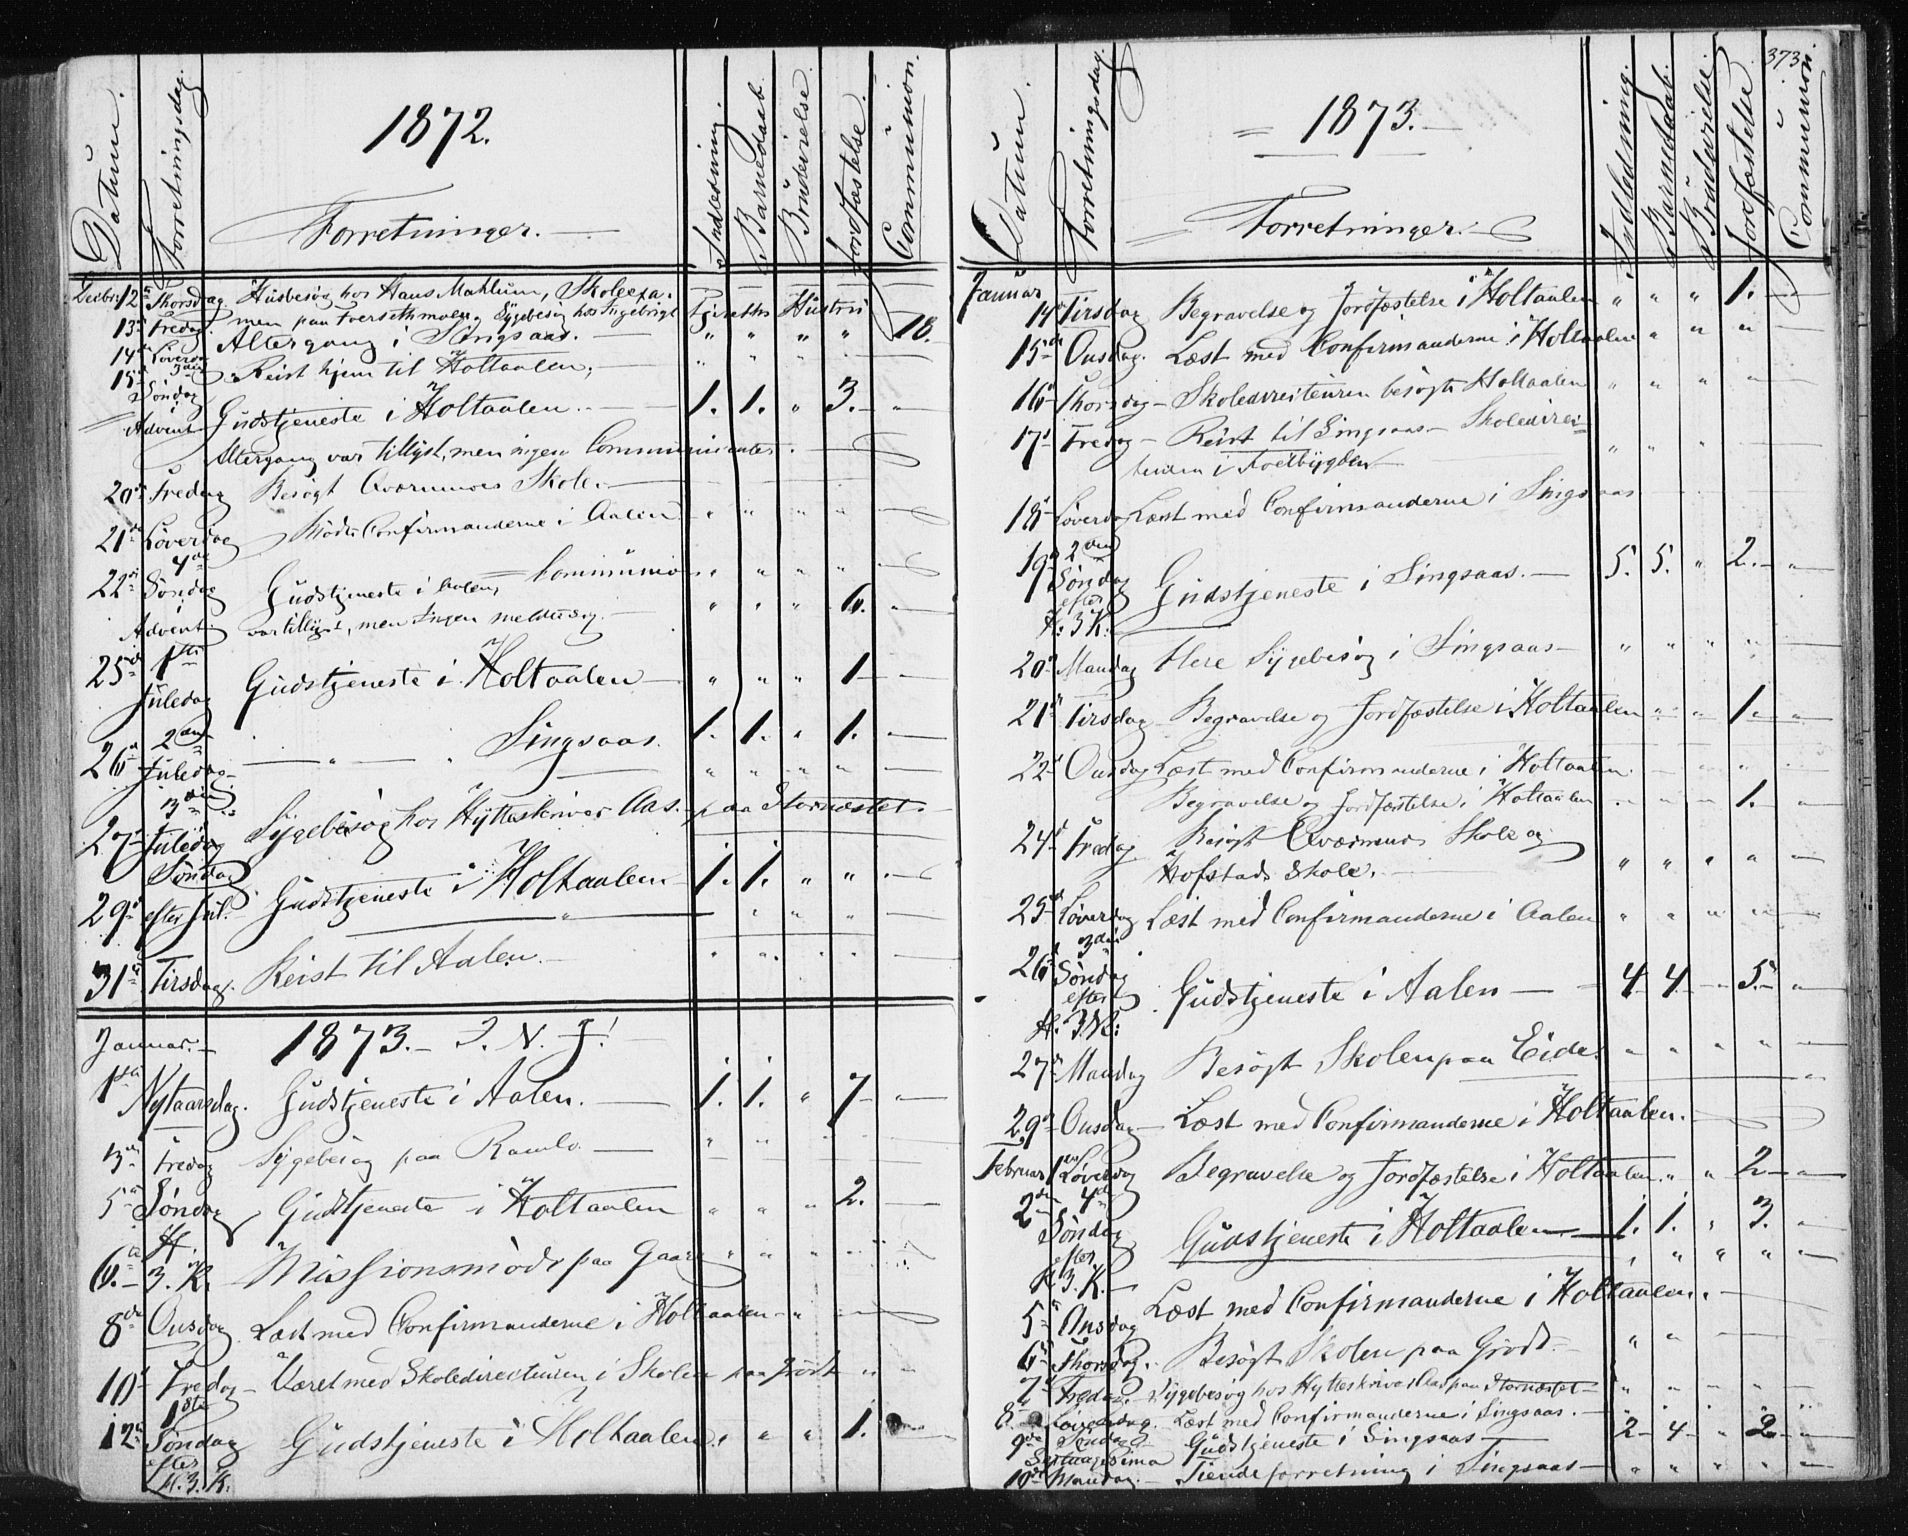 1872.
Datum. Forretningsdag. Forretninger. Indledning. Barnedaab. Brudevielse. Jordfæstelse. Communion.
Decbr. 12 Thorsdag. Husbesøg hos Hans Mahlum, Skoleexa-
13 Fredag. men paa Sygebesøg hos Ingebrigt Hustru
14 Løverdag Altergang i Singsaas. " " " " 18.
15 3die Reist hjem til Holtaalen. " " " "
Søndag i Advent Gudstjeneste i Holtaalen. 1. 1. " 3. "
Altergang var tillyst, men ingen Communicanter.
20 Fredag Besøgt Qværnmoes Skole.
21 Løverdag Confirmanderne i Aalen " " " "
22 4de Søndag Gudstjeneste i Aalen, Communion " " " "
Advent. var tillyst, men Ingen meldte sig. " " " 6. "
25 1ste Juledag Gudstjeneste i Holtaalen " " " 1 "
26 2den Juledag " Singsaas. 1. 1. " 1. "
" " " "
27 3die Juledag Sygebesøg hos Hytteskriver Aas. paa Stornæstet.
29 Søndag efter Jul. Gudstjeneste i Holtaalen 1. 1. " " "
" " " "
31 Tirsdag. Reist til Aalen. " " " "
Januar. 1873. I. N. J!
1ste Nytaarsdag. Gudstjeneste i Aalen. 1. 1. " 7 "
3 Fredag Sygebesøg paa Ramlo. " " "
5 Søndag Gudstjeneste i Holtaalen " " " 2.
6. H. 3. K. Missionsmøde paa Gaare " " " "
8de Onsdag Læst med Confirmanderne i Holtaalen "
10 Fredag Været med Skoledirecteuren i Skolen paa Grødt "
12 1ste Søndag efter H. 3. K. Gudstjeneste i Holtaalen. " " 1.
373.
1873.
Datum. Forretningsdag. Forretninger. Indledning. Barnedaab. Brudevielse. Jordfæstelse Communion.
Januar
14 Tirsdag Begravelse og Jordfæstelse i Holtaalen " " " 1.
15 Onsdag. Læst med Confirmanderne i Holtaalen " " "
16 Thorsdag Skoledirecteuren besøgte Holtaalen " " " "
17 Fredag Reist til Singsaas Skoledirec-
teuren i Forbygden " "
18 Løverdag Læst med Confirmanderne i Singsaas
19 2den Søndag efter H. 3 K. Gudstjeneste i Singsaas. 5. 5. " 2. "
20 Mandag Flere Sygebesøg i Singsaas " " " "
21 Tirsdag Begravelse og Jordfæstelse i Holtaalen " " 1. "
22 Onsdag Læst med Confirmanderne i Holtaalen.
Begravelse og Jordfæstelse i Holtaalen " " " 1. "
24 Fredag Besøgt Qværnmoes Skole og
Hofstads Skole. " " " " "
25 Løverdag Læst med Confirmanderne i Aalen " " " "
26 3die Søndag efter H. 3. K: Gudstjeneste i Aalen 4 4 " 5. "
27 Mandag Besøgt Skolen paa Eide. " " " " "
29 Onsdag Læst med Confirmanderne i Holtaalen.
Februar 1 Løverdag Begravelse og Jordfæstelse i Holtaalen. " " 2 "
2den 4de Søndag efter H. 3. K. Gudstjeneste i Holtaalen 1. 1. " 3. "
5 Onsdag Læst med Confirmanderne i Holtaalen.
6 Thorsdag. Besøgt Skolen paa Grødt. " "
7 Fredag. Sygebesøg hos Hytteskriver Aas paa Stornæstet " " " " "
8 Løverdag. Læst med Confirmanderne i Singsaas. " " " "
9de Søndag Septuagesima Gudstjeneste i Singsaas 2 4 " 2 "
10de Mandag. Tiendeforretning i Singsaas " " " " "